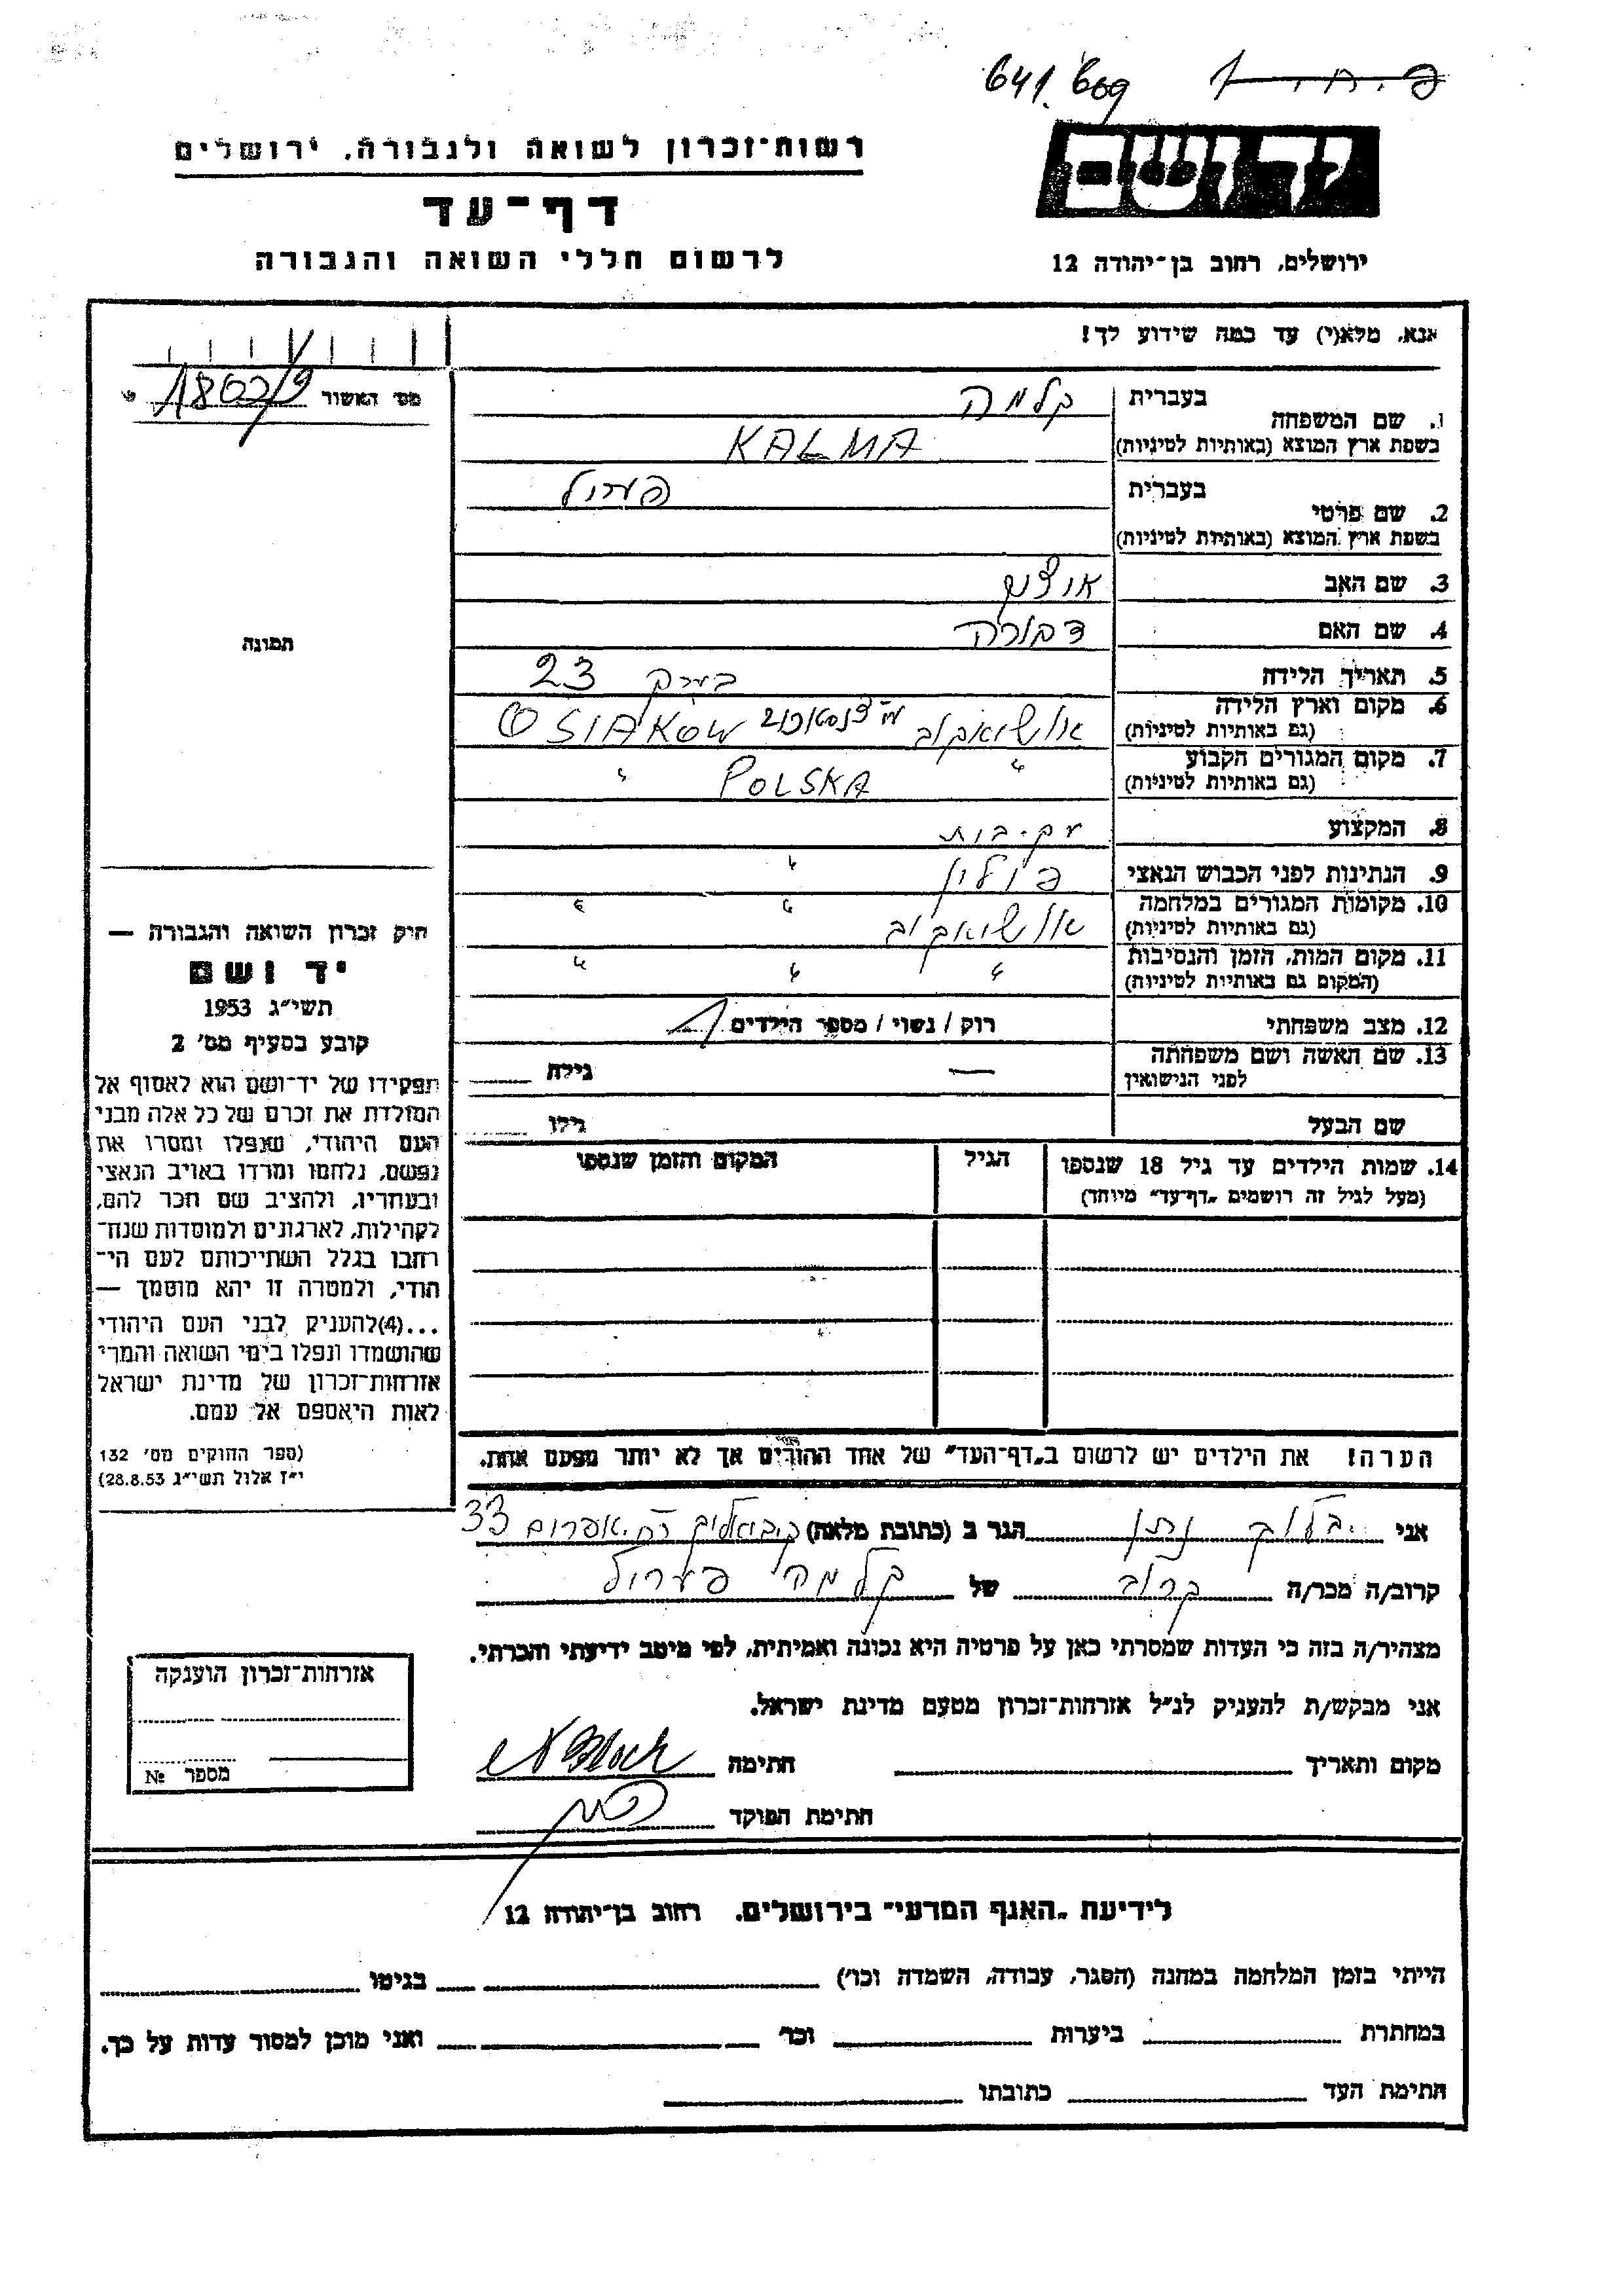 641.609
רשות-זכרון לשואה ולגבורה, ירושלים
יד ושם
דף-עד
לרשום חללי השואה והגבורה
ירושלים, רחוב בן-יהודה 12
אנא, מלא(י) עד כמה שידוע לך!
מס׳ האשור
1. שם המשפחה
בעברית קלמה
בשפת ארץ המוצא (באותיות לטיניות) KALMA
2. שם פרטי
בעברית
בשפת ארץ המוצא (באותיות לטיניות)
3. שם האב
4. שם האם דבורה
5. תאריך הלידה בערך 23
6. מקום וארץ הלידה (גם באותיות לטיניות) אושיאקוב OSIAKOW
7. מקום המגורים הקבוע (גם באותיות לטיניות) " POLSKA "
8. המקצוע עק-בית
9. הנתינות לפני הכבוש הנאצי פולין "
10. מקומות המגורים במלחמה (גם באותיות לטיניות) אושיאקוב " "
11. מקום המות, הזמן והנסיבות (המקום גם באותיות לטיניות) " " "
12. מצב משפחתי רוק / נשוי / מספר הילדים
13. שם האשה ושם משפחתה לפני הנישואין — גילה
שם הבעל גילו
14. שמות הילדים עד גיל 18 שנספו (מעל לגיל זה רושמים „דף-עד" מיוחד)
הגיל
המקום והזמן שנספו
הערה! את הילדים יש לרשום ב„דף-העד" של אחד ההורים אך לא יותר מפעם אחת.
תמונה
חוק זכרון השואה והגבורה —
יד ושם
תשי״ג 1953
קובע בסעיף מס׳ 2
תפקידו של יד-ושם הוא לאסוף אל
המולדת את זכרם של כל אלה מבני
העם היהודי, שנפלו ומסרו את
נפשם, נלחמו ומרדו באויב הנאצי
ובעוזריו, ולהציב שם וזכר להם,
לקהילות, לארגונים ולמוסדות שנח-
רבו בגלל השתייכותם לעם הי-
הודי, ולמטרה זו יהא מוסמך —
...(4) להעניק לבני העם היהודי
שהושמדו ונפלו בימי השואה והמרי
אזרחות-זכרון של מדינת ישראל
לאות היאספם אל עמם.
(ספר החוקים מס׳ 132
י״ז אלול תשי״ג 28.8.53)
אני בלוך נתן הגר ב (כתובת מלאה) 33
קרוב/ה מכר/ה קרוב של קלמה
מצהיר/ה בזה כי העדות שמסרתי כאן על פרטיה היא נכונה ואמיתית, לפי מיטב ידיעתי והכרתי.
אני מבקש/ת להעניק לנ״ל אזרחות-זכרון מטעם מדינת ישראל.
מקום ותאריך חתימה N Bloch
חתימת הפוקד
אזרחות-זכרון הוענקה
מספר №
לידיעת „האגף המדעי" בירושלים, רחוב בן-יהודה 12
הייתי בזמן המלחמה במחנה (הסגר, עבודה, השמדה וכו׳) בגיטו
במחתרת ביערות וכו׳ ואני מוכן למסור עדות על כך.
חתימת העד כתובתו